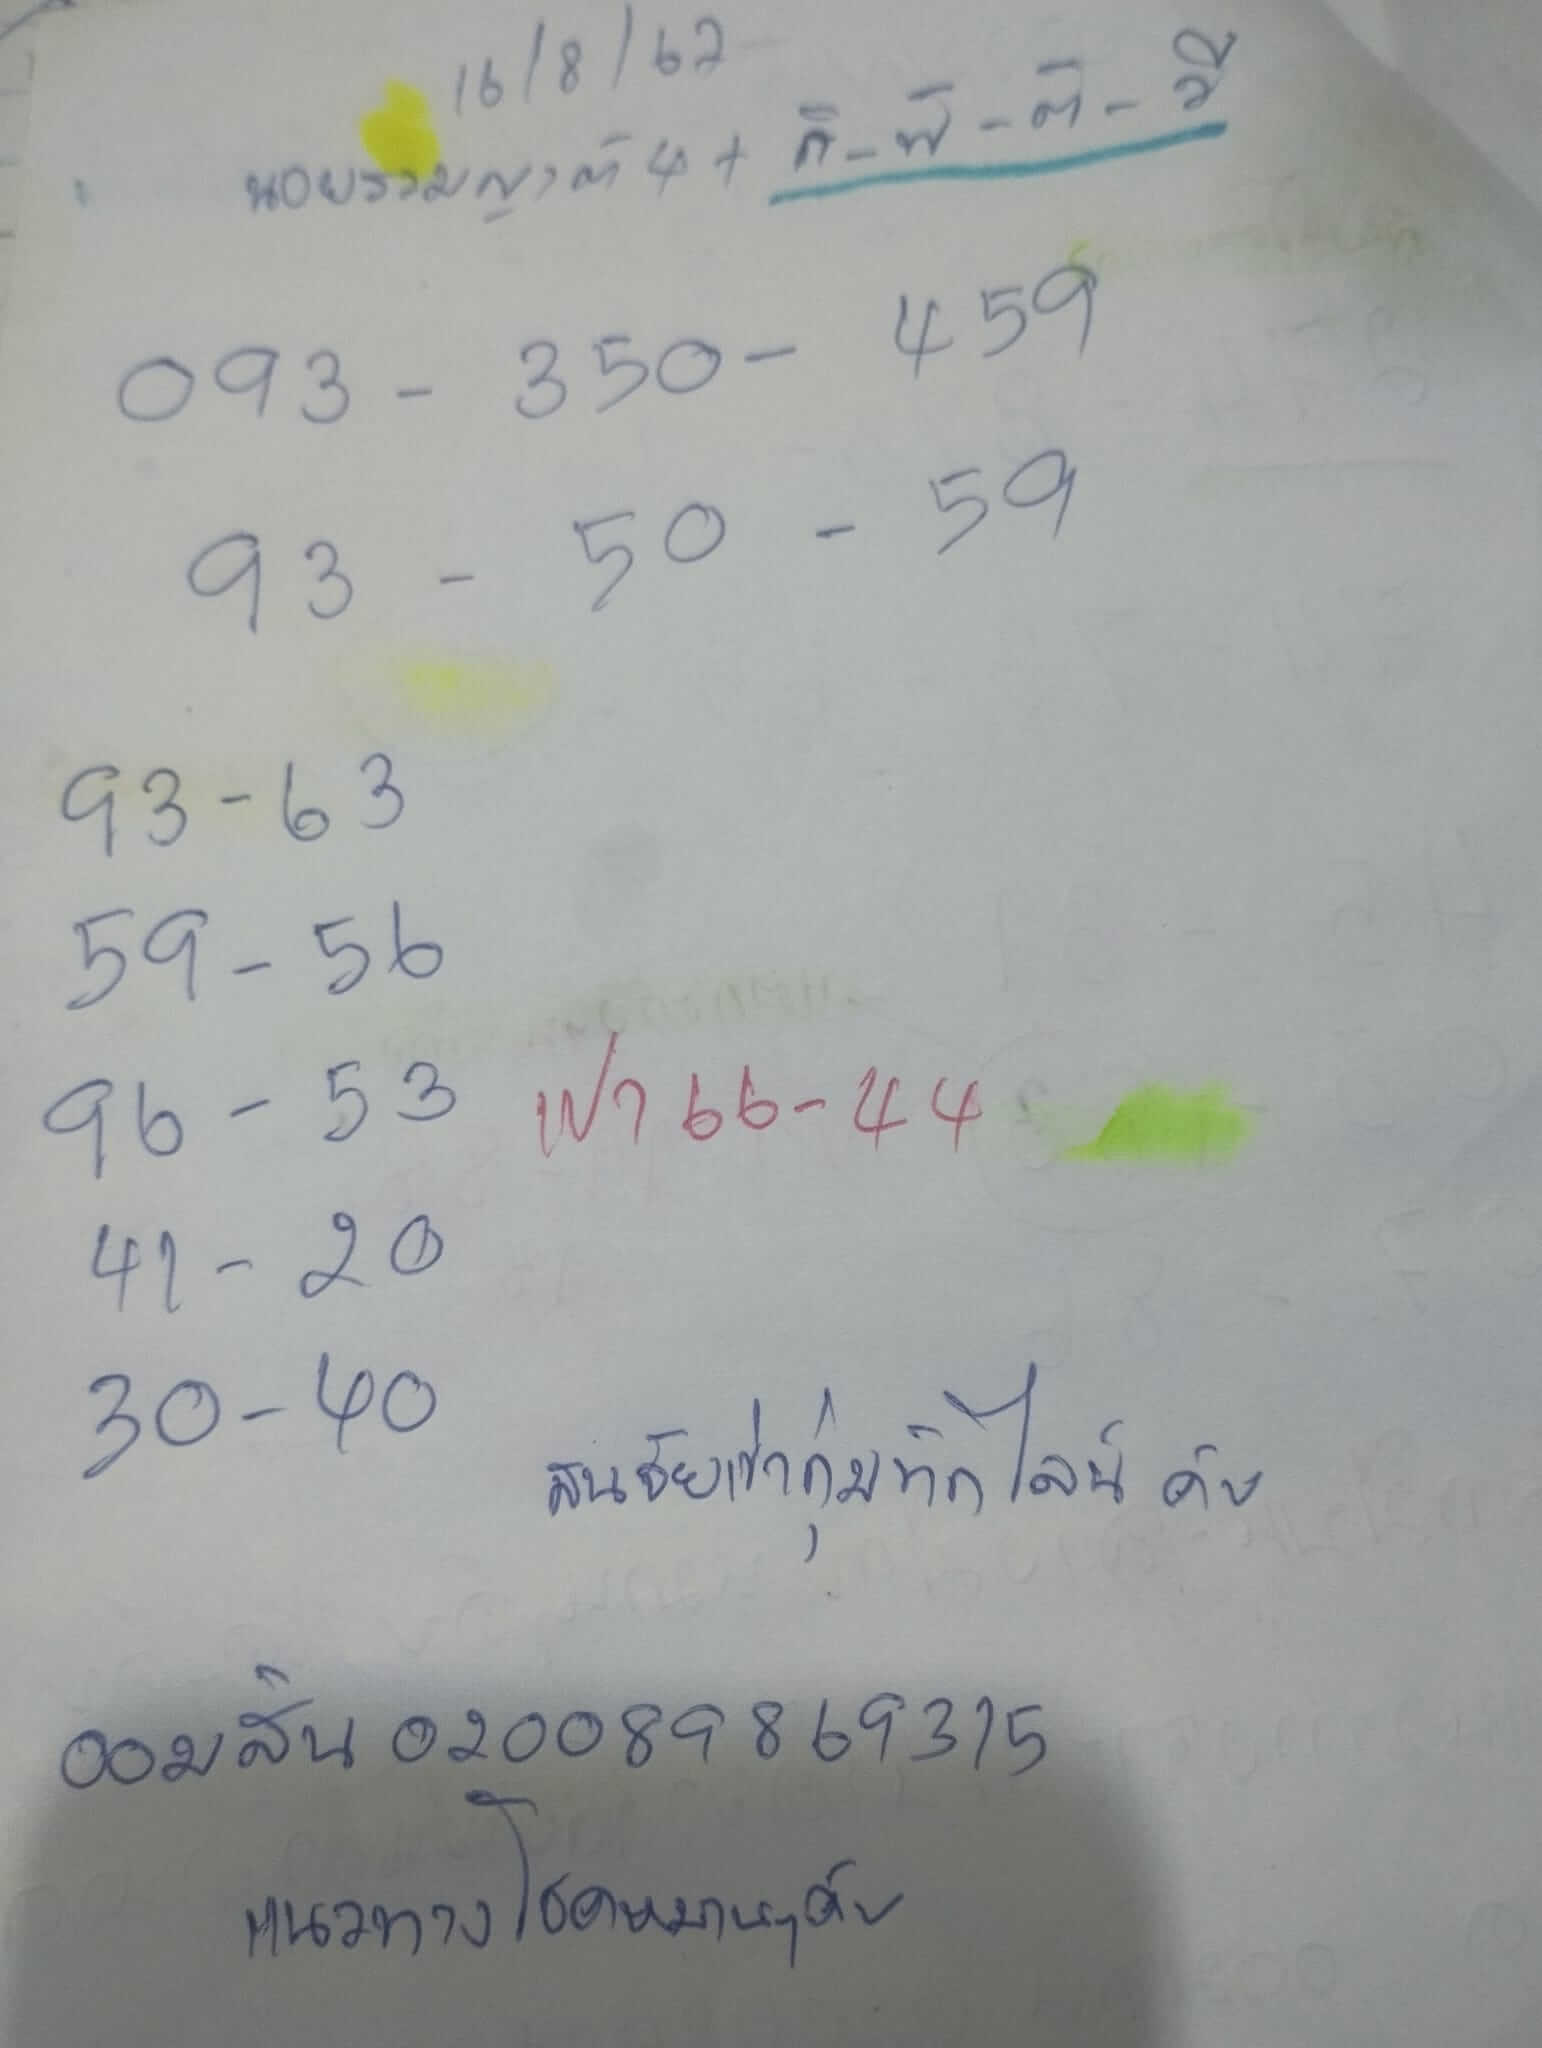 16/8/67
นอยรวมญาติ 4 + กิ-พิ-ติ-วี
093 - 350 - 459
93 - 50 - 59
93-63
59-56
96-53 เฝ่า 66-44
41-20
30-40
สนใจเข้ากลุ่มทักไลน์ ครับ
ออมสิน 020089869315
แนวทางโชคหมานๆครับ